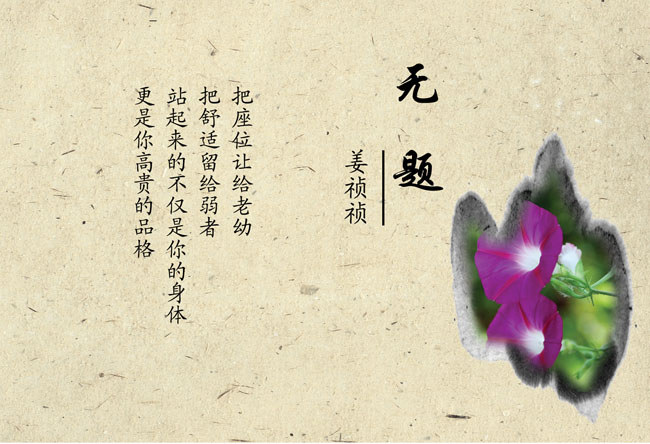 无题
姜祯祯
把座位让给老幼
把舒适留给弱者
站起来的不仅是你的身体
更是你高贵的品格